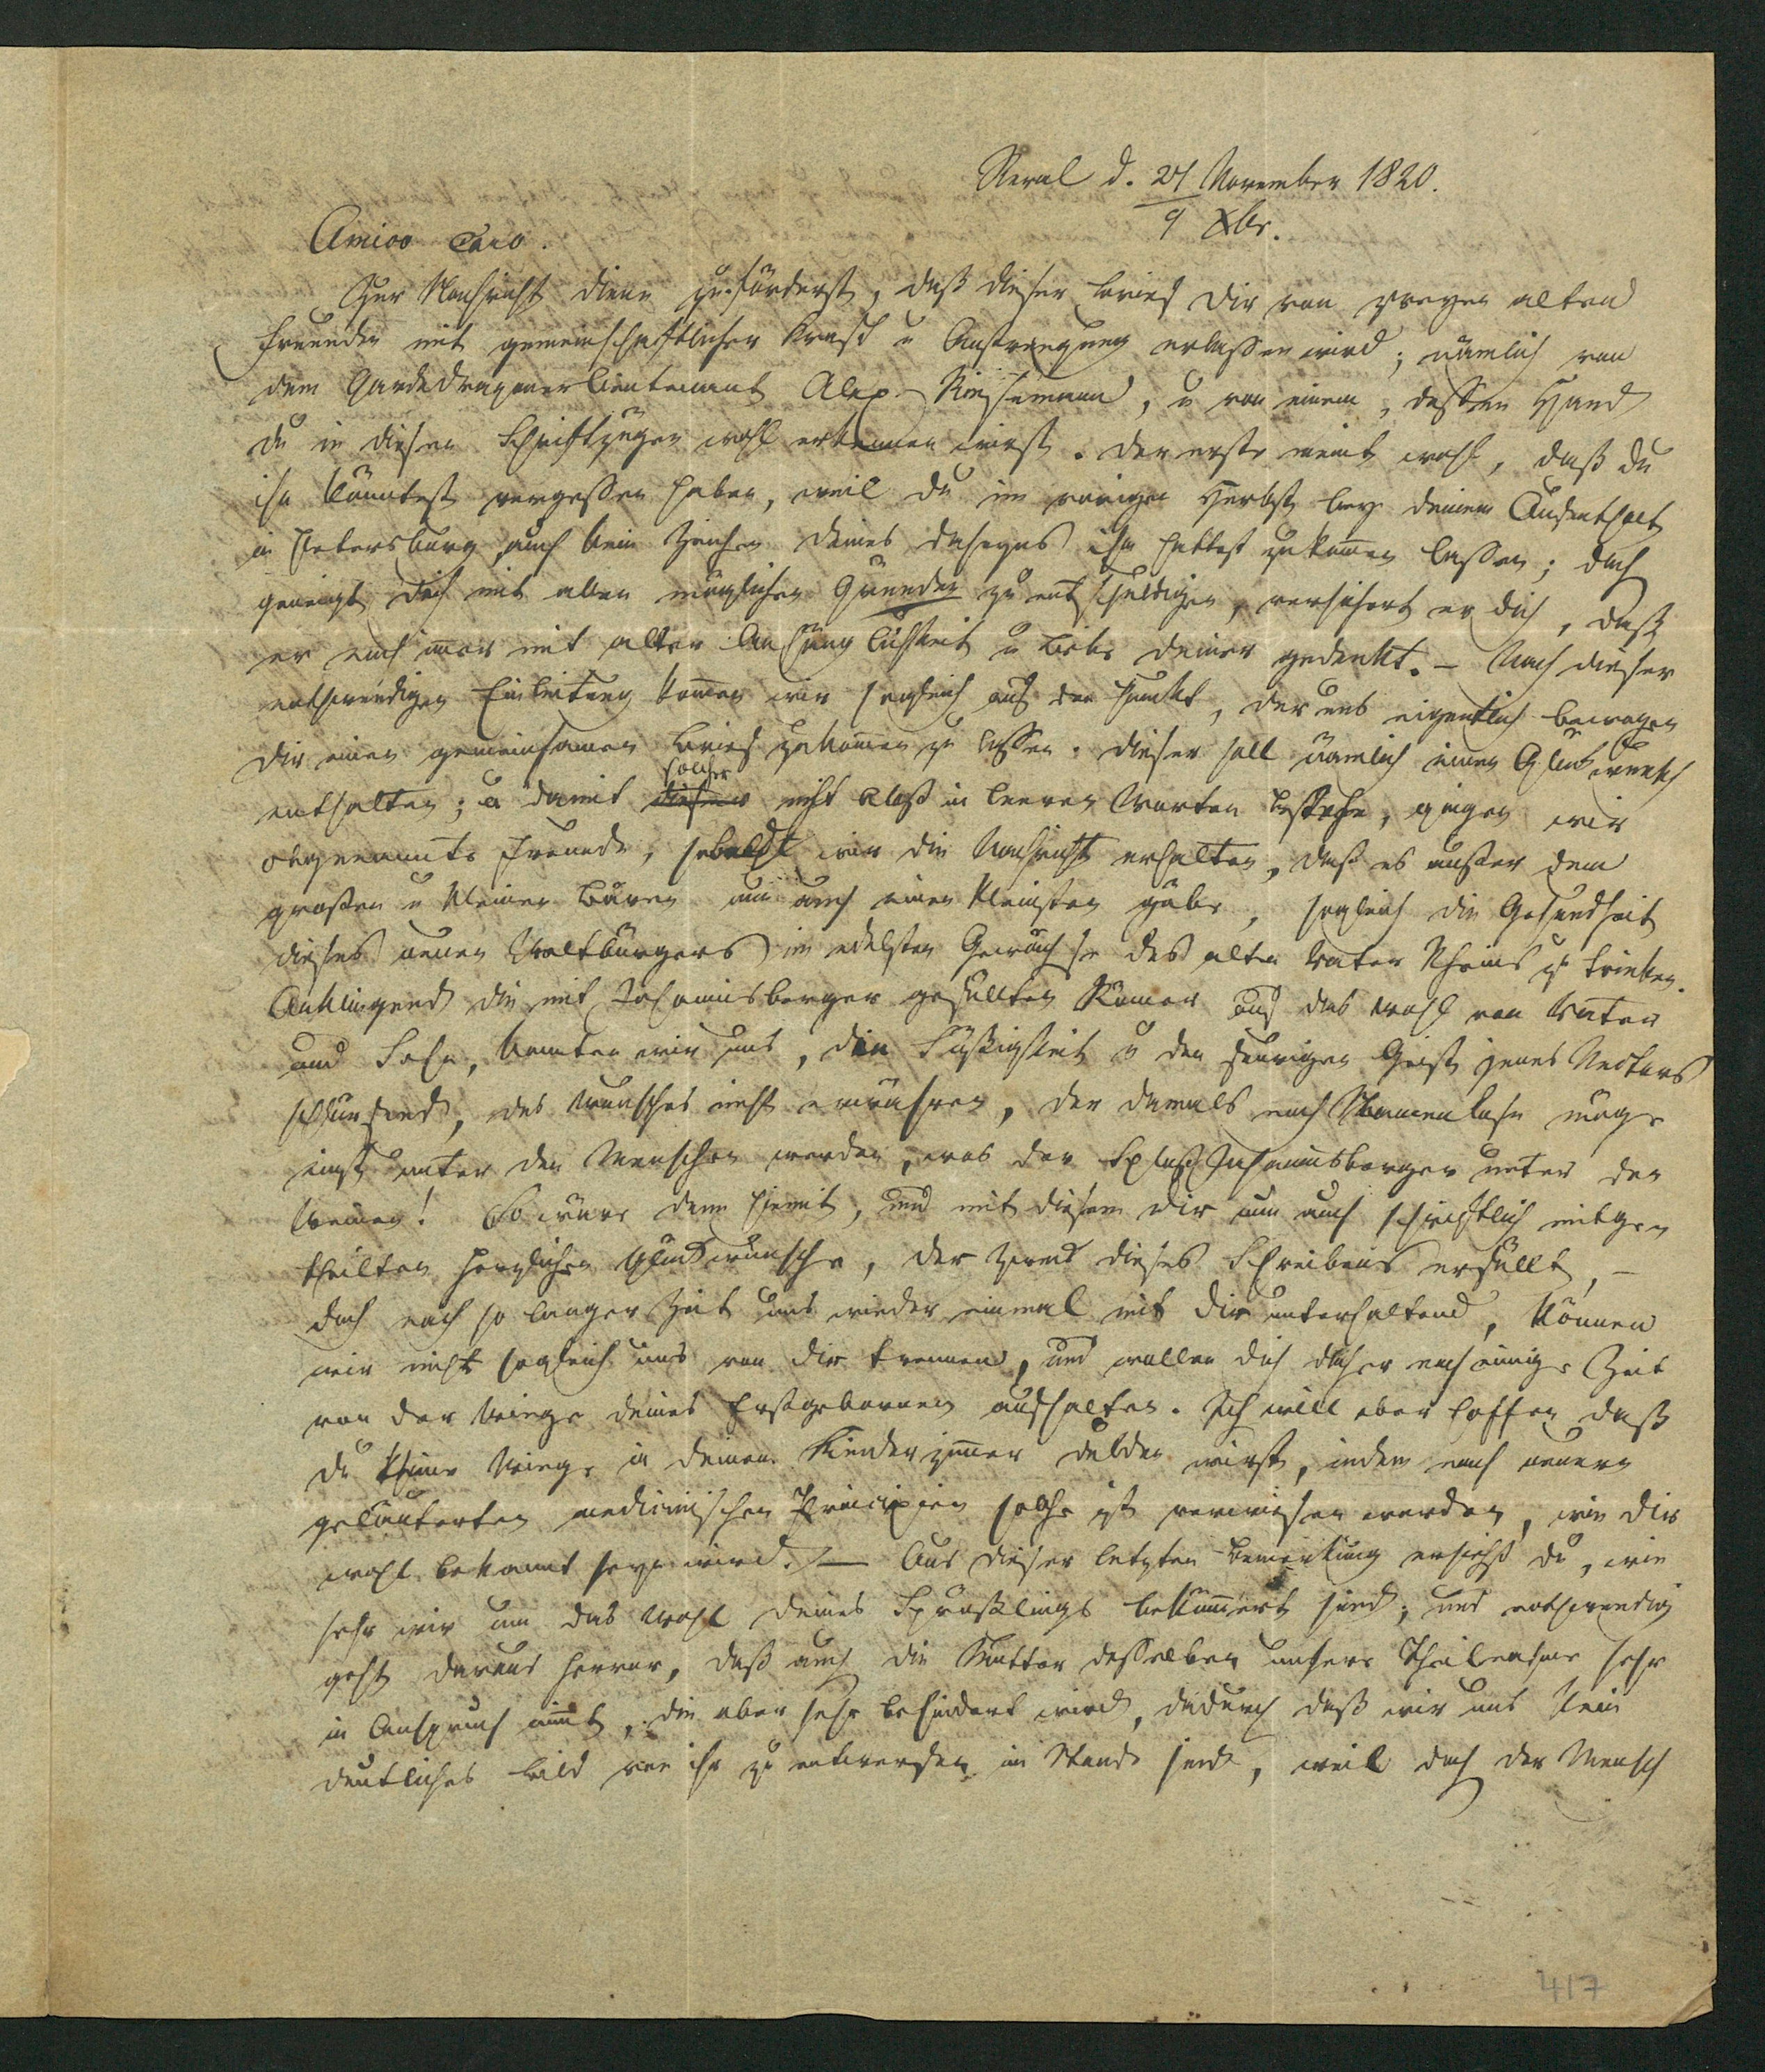 Reval d. 27 November 1820.
9 Xbr.
Amico Caro.
Zur Nachricht diene zuförderst, daß dieser Brief Dir von zweyen alten
Freunden mit gemeinschaftlicher Kraft u Anstrengung erlassen wird; nämlich von
dem Gardedragoner lieutenant Alex. Riesemann, u von einem, dessen Hand
Du in diesen Schriftzügen wohl erkennen wirst. Der erste meint wohl, daß Du
ihn könntest vergessen haben, weil Du im vorigen Herbst bey Deinem Aufenthalt
in Petersburg auch kein Zeichen Deines Daseyns ihm hattest zukomen lassen; doch
geneigt Dich mit allen möglichen Gründen zu entschuldigen, versichert er Dich, daß
er noch imer mit alter Anhänglichkeit u Liebe Deiner gedenkt. – Nach dieser
nothwendigen Einleitung komen wir sogleich auf den Punkt, der uns eigentlich bewogen
Dir einen gemeinsamen Brief zukomen zu lassen. Dieser soll nämlich einen Glückwunsch
enthalten; u damit dieser solcher nicht bloß in leeren Worten bestehe, gingen wir
obgenannte Freunde, sobald wir die Nachricht erhalten, daß es außer dem
großen u kleinen Bären nun auch einen kleinsten gäbe, sogleich die Gesundheit
dieses neuen Weltbürgers im edelsten Gewächse des alten Vater Rheins zu trinken.
Anklingend die mit Johannisberger gefüllten Römer auf das Wohl von Vater
und Sohn, konnten wir uns, die Süßigkeit u den feurigen Geist jenes Nectars
schlürfend, des Wunsches nicht erwähren, der damals noch Namenlose möge
einst unter den Menschen werden, was der Schloß Johannisberger unter den
Weinen! So wäre denn hiemit, und mit diesem Dir nun auch schriftlich mitge
theilten herzlichen Glückwunsche, der Zweck dieses Schreibens erfüllt, –
doch nach so langer Zeit uns wieder einmal mit Dir unterhaltend, können
wir nicht sogleich uns von Dir trennen, und wollen Dich daher noch einige Zeit
von der Wiege Deines Erstgebornen aufhalten. Ich will aber hoffen daß
Du keine Wiege in Deinem Kinderzimer dulden wirst, indem nach neuern
geläuterten medicinischen Principien solche ist verwiesen worden, wie Dir
wohl bekannt seyn wird. – Aus dieser letzten Bemerkung ersiehst Du, wie
sehr wir um das Wohl Deines Sprößlings bekümmert sind; und nothwendig
geht daraus hervor, daß auch die Mutter desselben unsere Theilnahme sehr
in Anspruch nimt, die aber sehr behindert wird, dadurch daß wir uns kein
deutliches Bild von ihr zu entwerfen im Stande sind, weil doch der Mensch
417